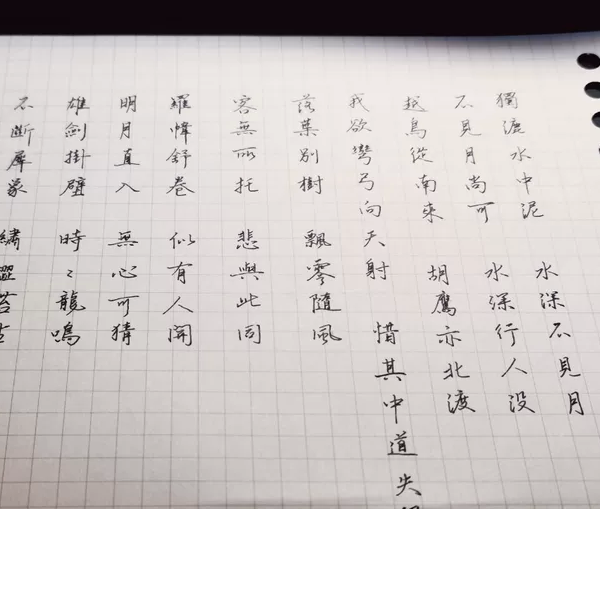 獨漉水中泥 水深不見月
不見月尚可 水深行人没
越鳥從南來 胡鷹亦北渡
我欲彎弓向天射 惜其中道失
落葉別樹 飄零隨風
客無所托 悲與此同
羅幃舒卷 似有人開
明月直入 無心可猜
雄劍掛壁 時〻龍鳴
不斷犀象 繡澀苔生